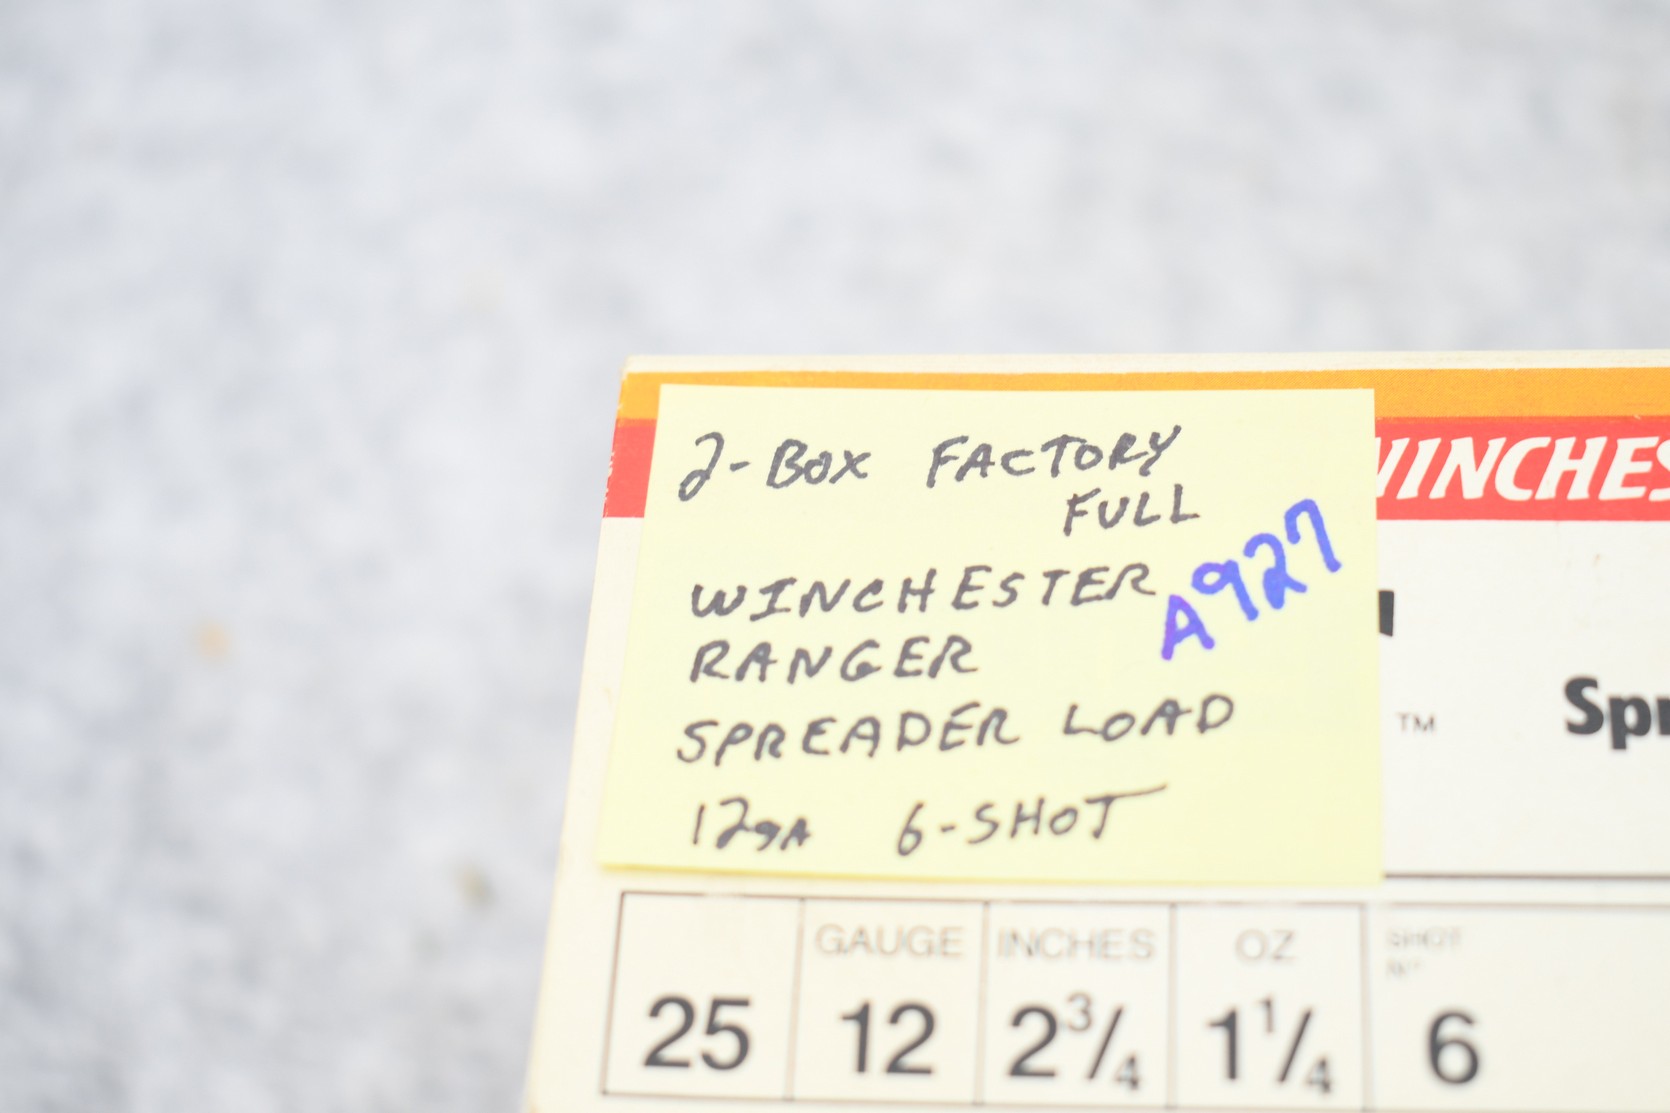 2-BOX FACTORY
FULL
WINCHESTER
A927
RANGER
SPREADER LOAD
12gA 6-SHOT
WINCHES
TM Spr
GAUGE INCHES OZ SHOT
N°
25 12 2 3/4 1 1/4 6